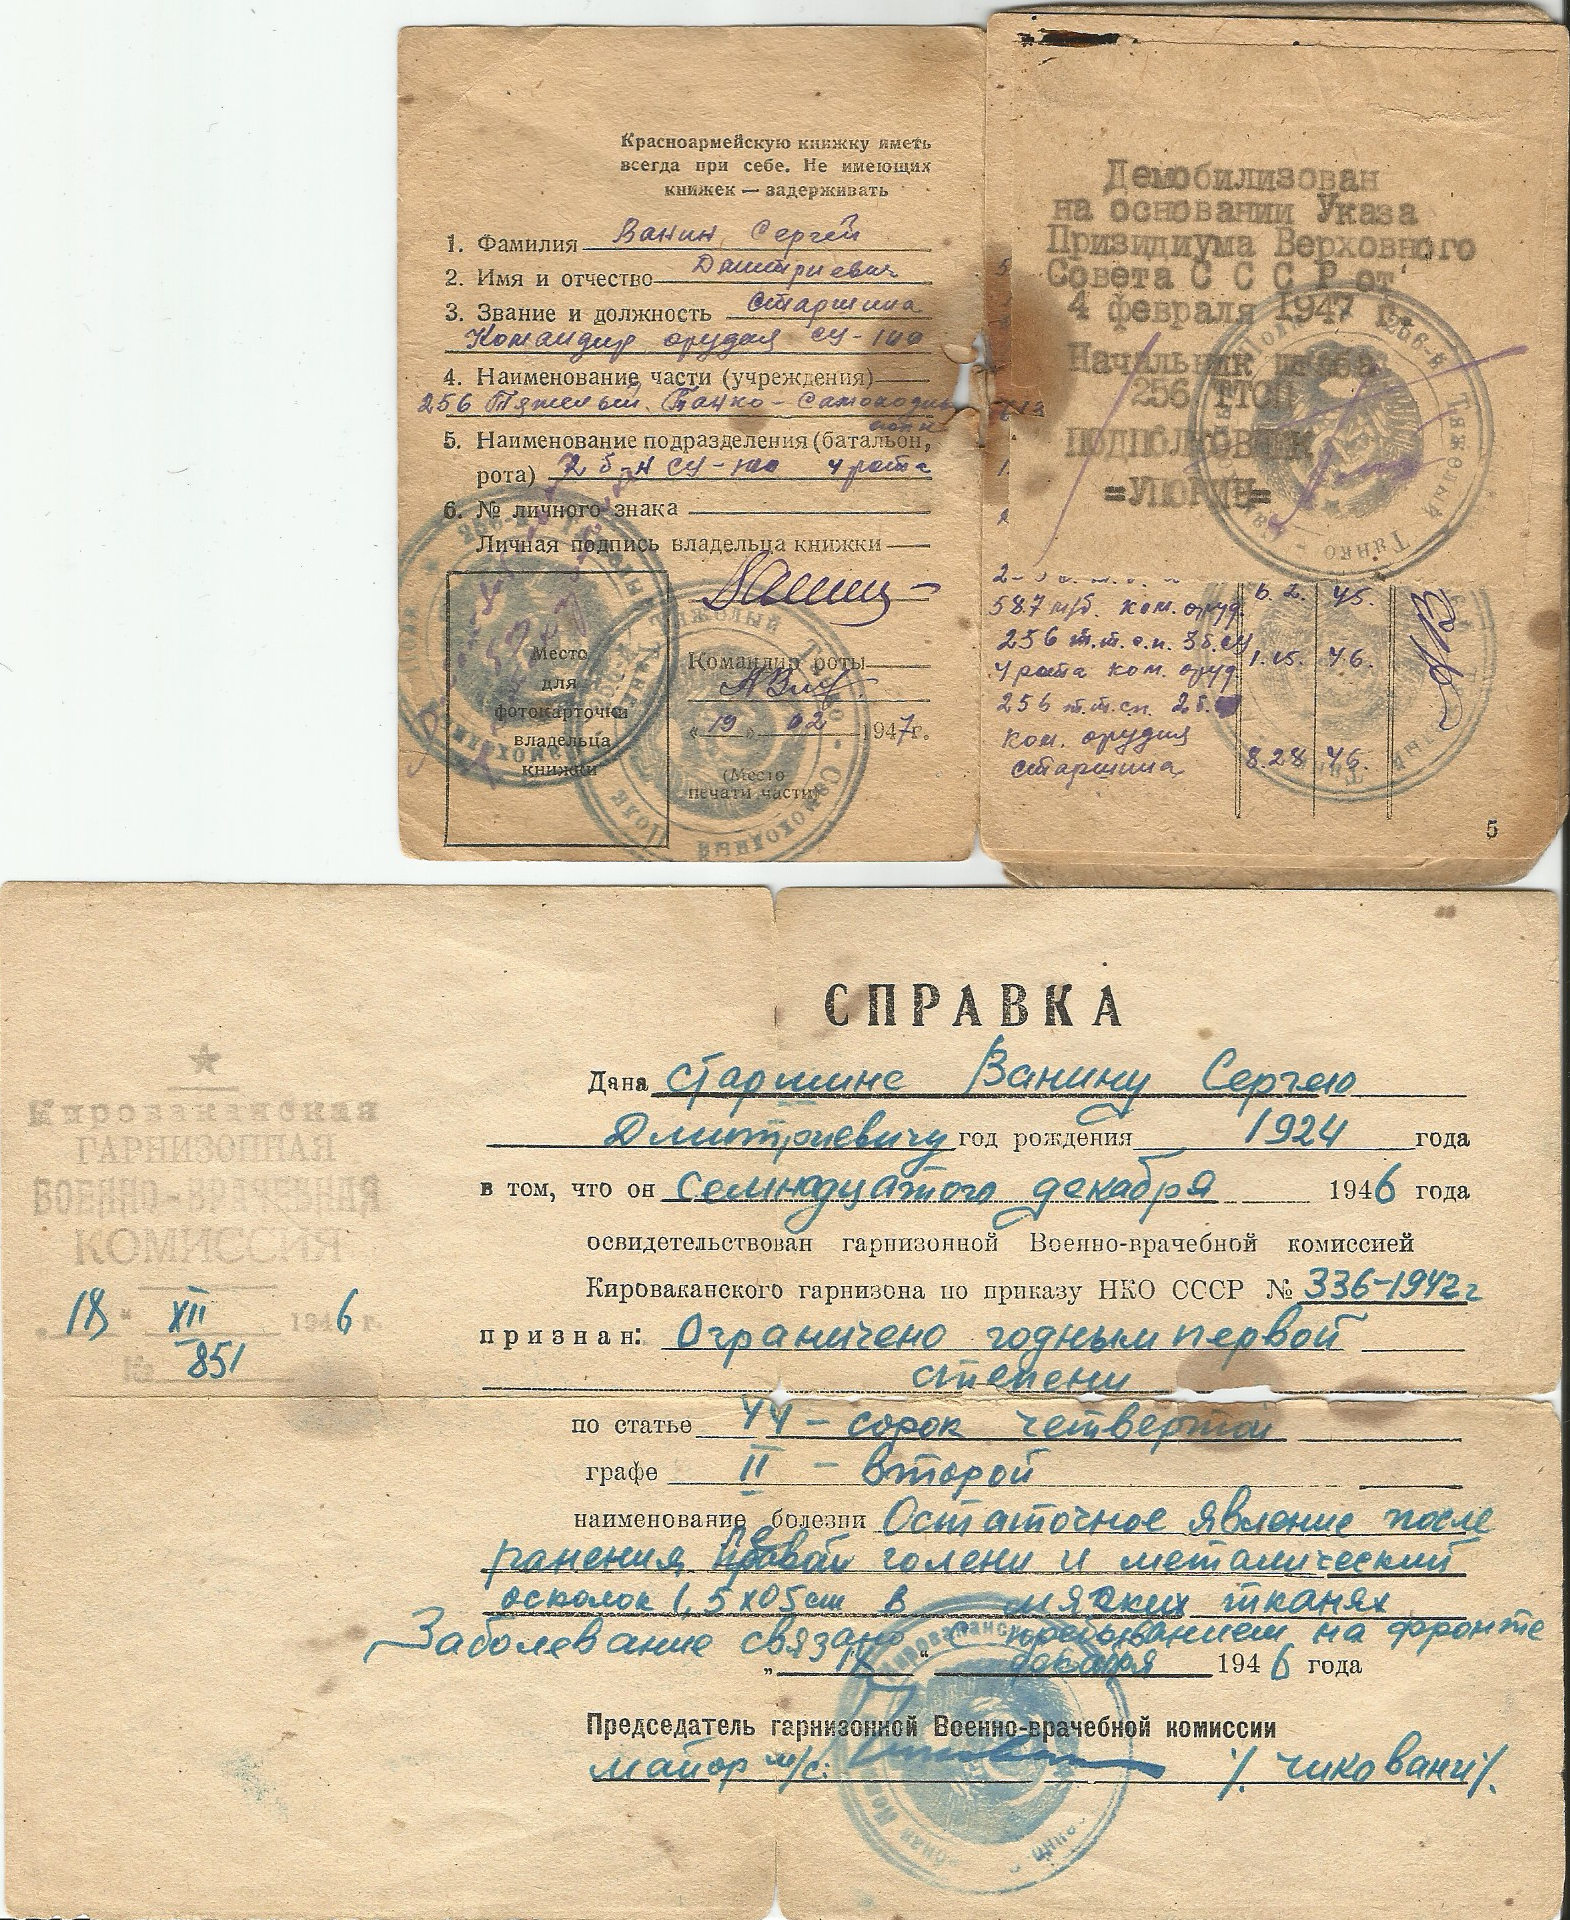 Красноармейскую книжку иметь
всегда при себе. Не имеющих
книжек — задерживать
1. Фамилия Ванин Сергей
2. Имя и отчество Дмитриевич
3. Звание и должность Старшина
Командир орудия СУ-100
4. Наименование части (учреждения)
256 Тяжелый Танко-Самоходный
полк
5. Наименование подразделения (батальон,
рота) 2 б-н СУ-100 4 рота
6. № личного знака
Личная подпись владельца книжки
Ванин
Место
для
фотокарточки
владельца
книжки
Командир роты
«19» 02 1947 г.
(Место
печати части)
Демобилизован
на основании Указа
Призидиума Верховного
Совета С С С Р от
4 февраля 1947 г.
Начальник штаба
256 ТТСП
ПОДПОЛКОВНИК
=УПОРИН=
256-й Тяжелый Танко-
587 п/б. ком. оруд. 6. 2. 45.
256 т.т.с.п. 3б. СУ
4 рота ком. оруд 1.15. 46.
256 т.т.сп. 2б.
ком. орудия
старшина 8.28 46.
5
СПРАВКА
Кироваканская
ГАРНИЗОННАЯ
ВОЕННО-ВРАЧЕБНАЯ
КОМИССИЯ
„18" XII 1946 г.
№ 851
Дана старшине Ванину Сергею
Дмитриевичу год рождения 1924 года
в том, что он семнадцатого декабря 1946 года
освидетельствован гарнизонной Военно-врачебной комиссией
Кироваканского гарнизона по приказу НКО СССР № 336-1942г
признан: Ограничено годным первой
степени
по статье 44 – сорок четвертой
графе II – второй
наименование болезни Остаточное явление после
ранения правой голени и металический
осколок 1,5х05см в мягких тканях
Заболевание связано с пребыванием на фронте
„18" декабря 1946 года
Председатель гарнизонной Военно-врачебной комиссии
майор м/с: /. Чиковани/.